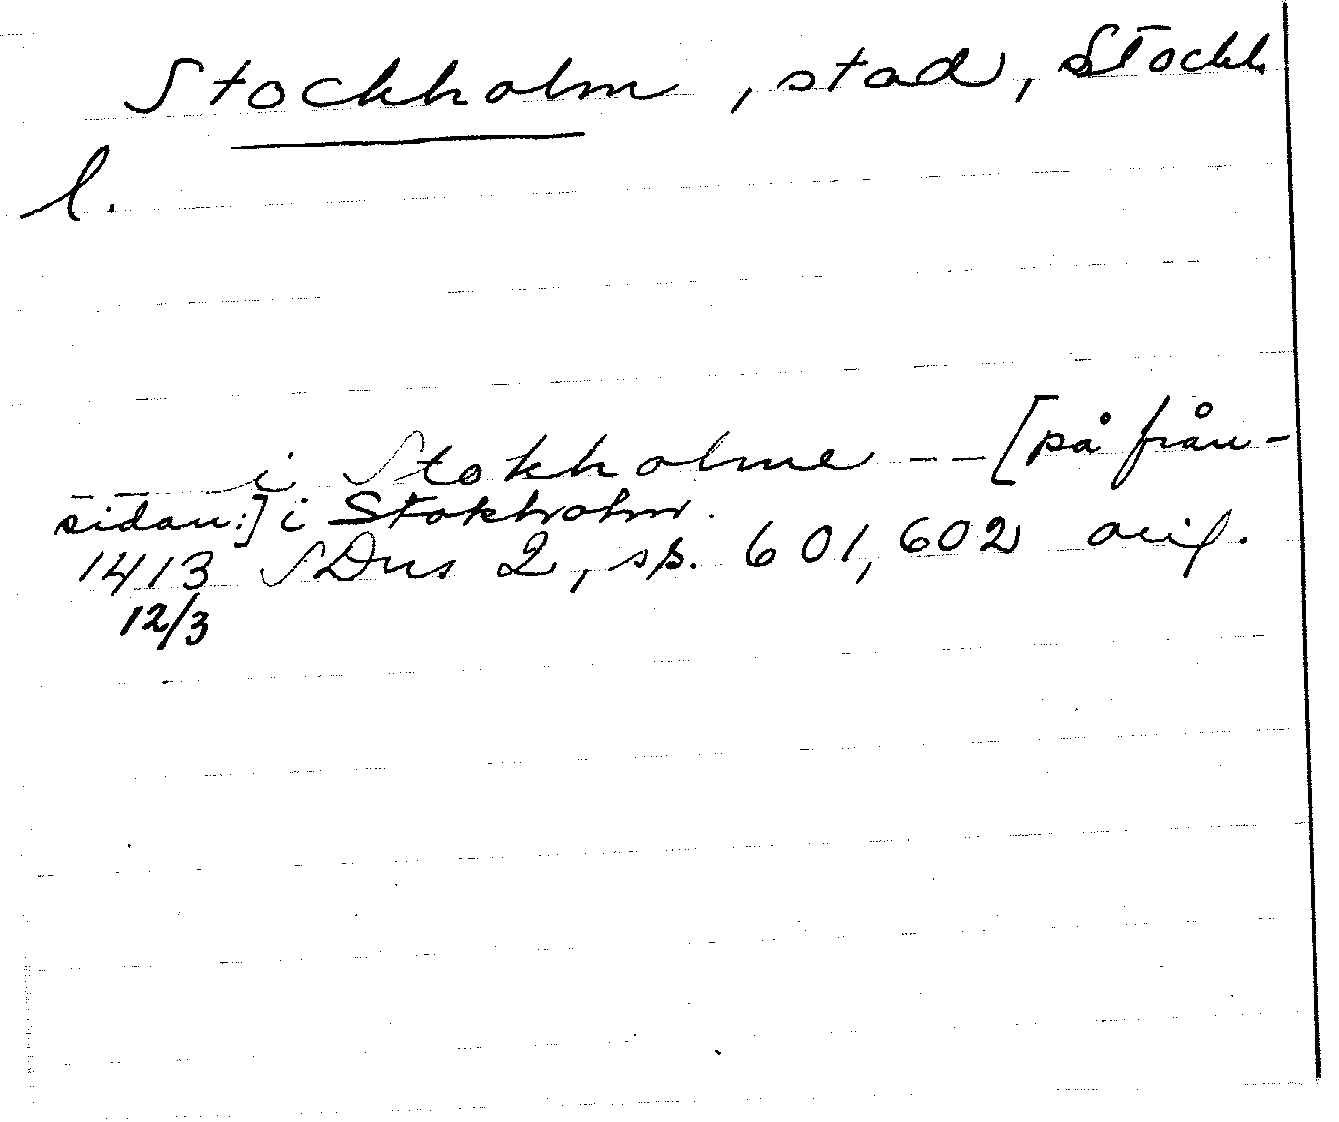 Stockholm, stad, Stockh.
l.
– – i Stokholme – – [på från-
sidan:] i Stokholm.
1413 SDns 2, sp. 601, 602 orig.
12/3